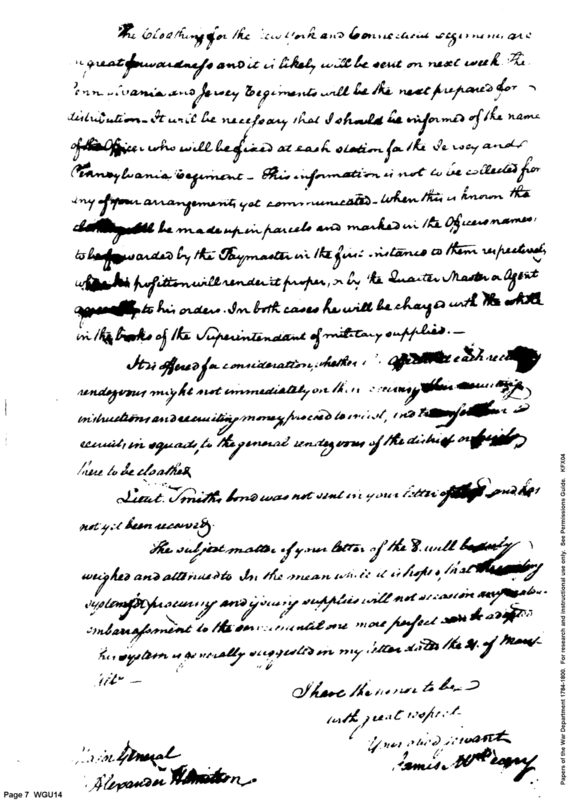 The Cloathing for the New York and Connecticut regiments are
in great forwardness and it is likely will be sent on next week. The
Pennsylvania and Jersey Regiments will be the next prepared for
distribution - It will be necessary that I should be informed of the name
of the Officer who will be fixed at each station for the Jersey and
Pennsylvania Regiment - This information is not to be collected from
any of your arrangements yet communicated - When this is known the
cloathing will be made up in parcels and marked in the Officers names,
to be forwarded by the Paymaster in the first instance to them respectively
when his position will render it proper, or by the Quarter Master or Agent
to his orders. In both cases he will be charged with the whole
in the books of the Superintendant of military supplies. -
It is offered for consideration, whether the each
rendezvous might not immediately on their recruiting
instructions and recruiting money proceed to inlist, and
recruits in squads, to the general rendezvous of the district
there to be cloathed
Lieut. Smiths bond was not sent in your letter of and has
not yet been received.
The subject matter of your letter of the 8. will be duly
weighed and attended to In the mean while it is hoped, that
system of procuring and issuing supplies will not occasion any
embarrassment to the service until one more perfect adopted
system is generally suggested in my letter dated the 21. of
I have the honor to be
with great respect
Your obed servant
James McHenry
Major General
Alexander Hamilton.
Page 7 WGU14
Papers of the War Department 1784-1800. For research and instructional use only. See Permissions Guide. KFX04